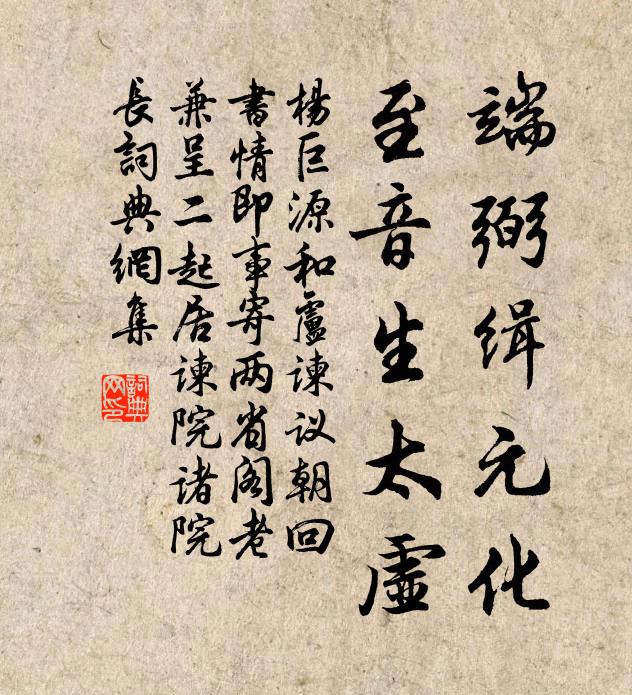 端弼缉元化
至音生太虚
楊巨源和盧谏议朝回
書情即事寄两省阁老
兼呈二起居谏院诸院
長詞典網集
詞典網印